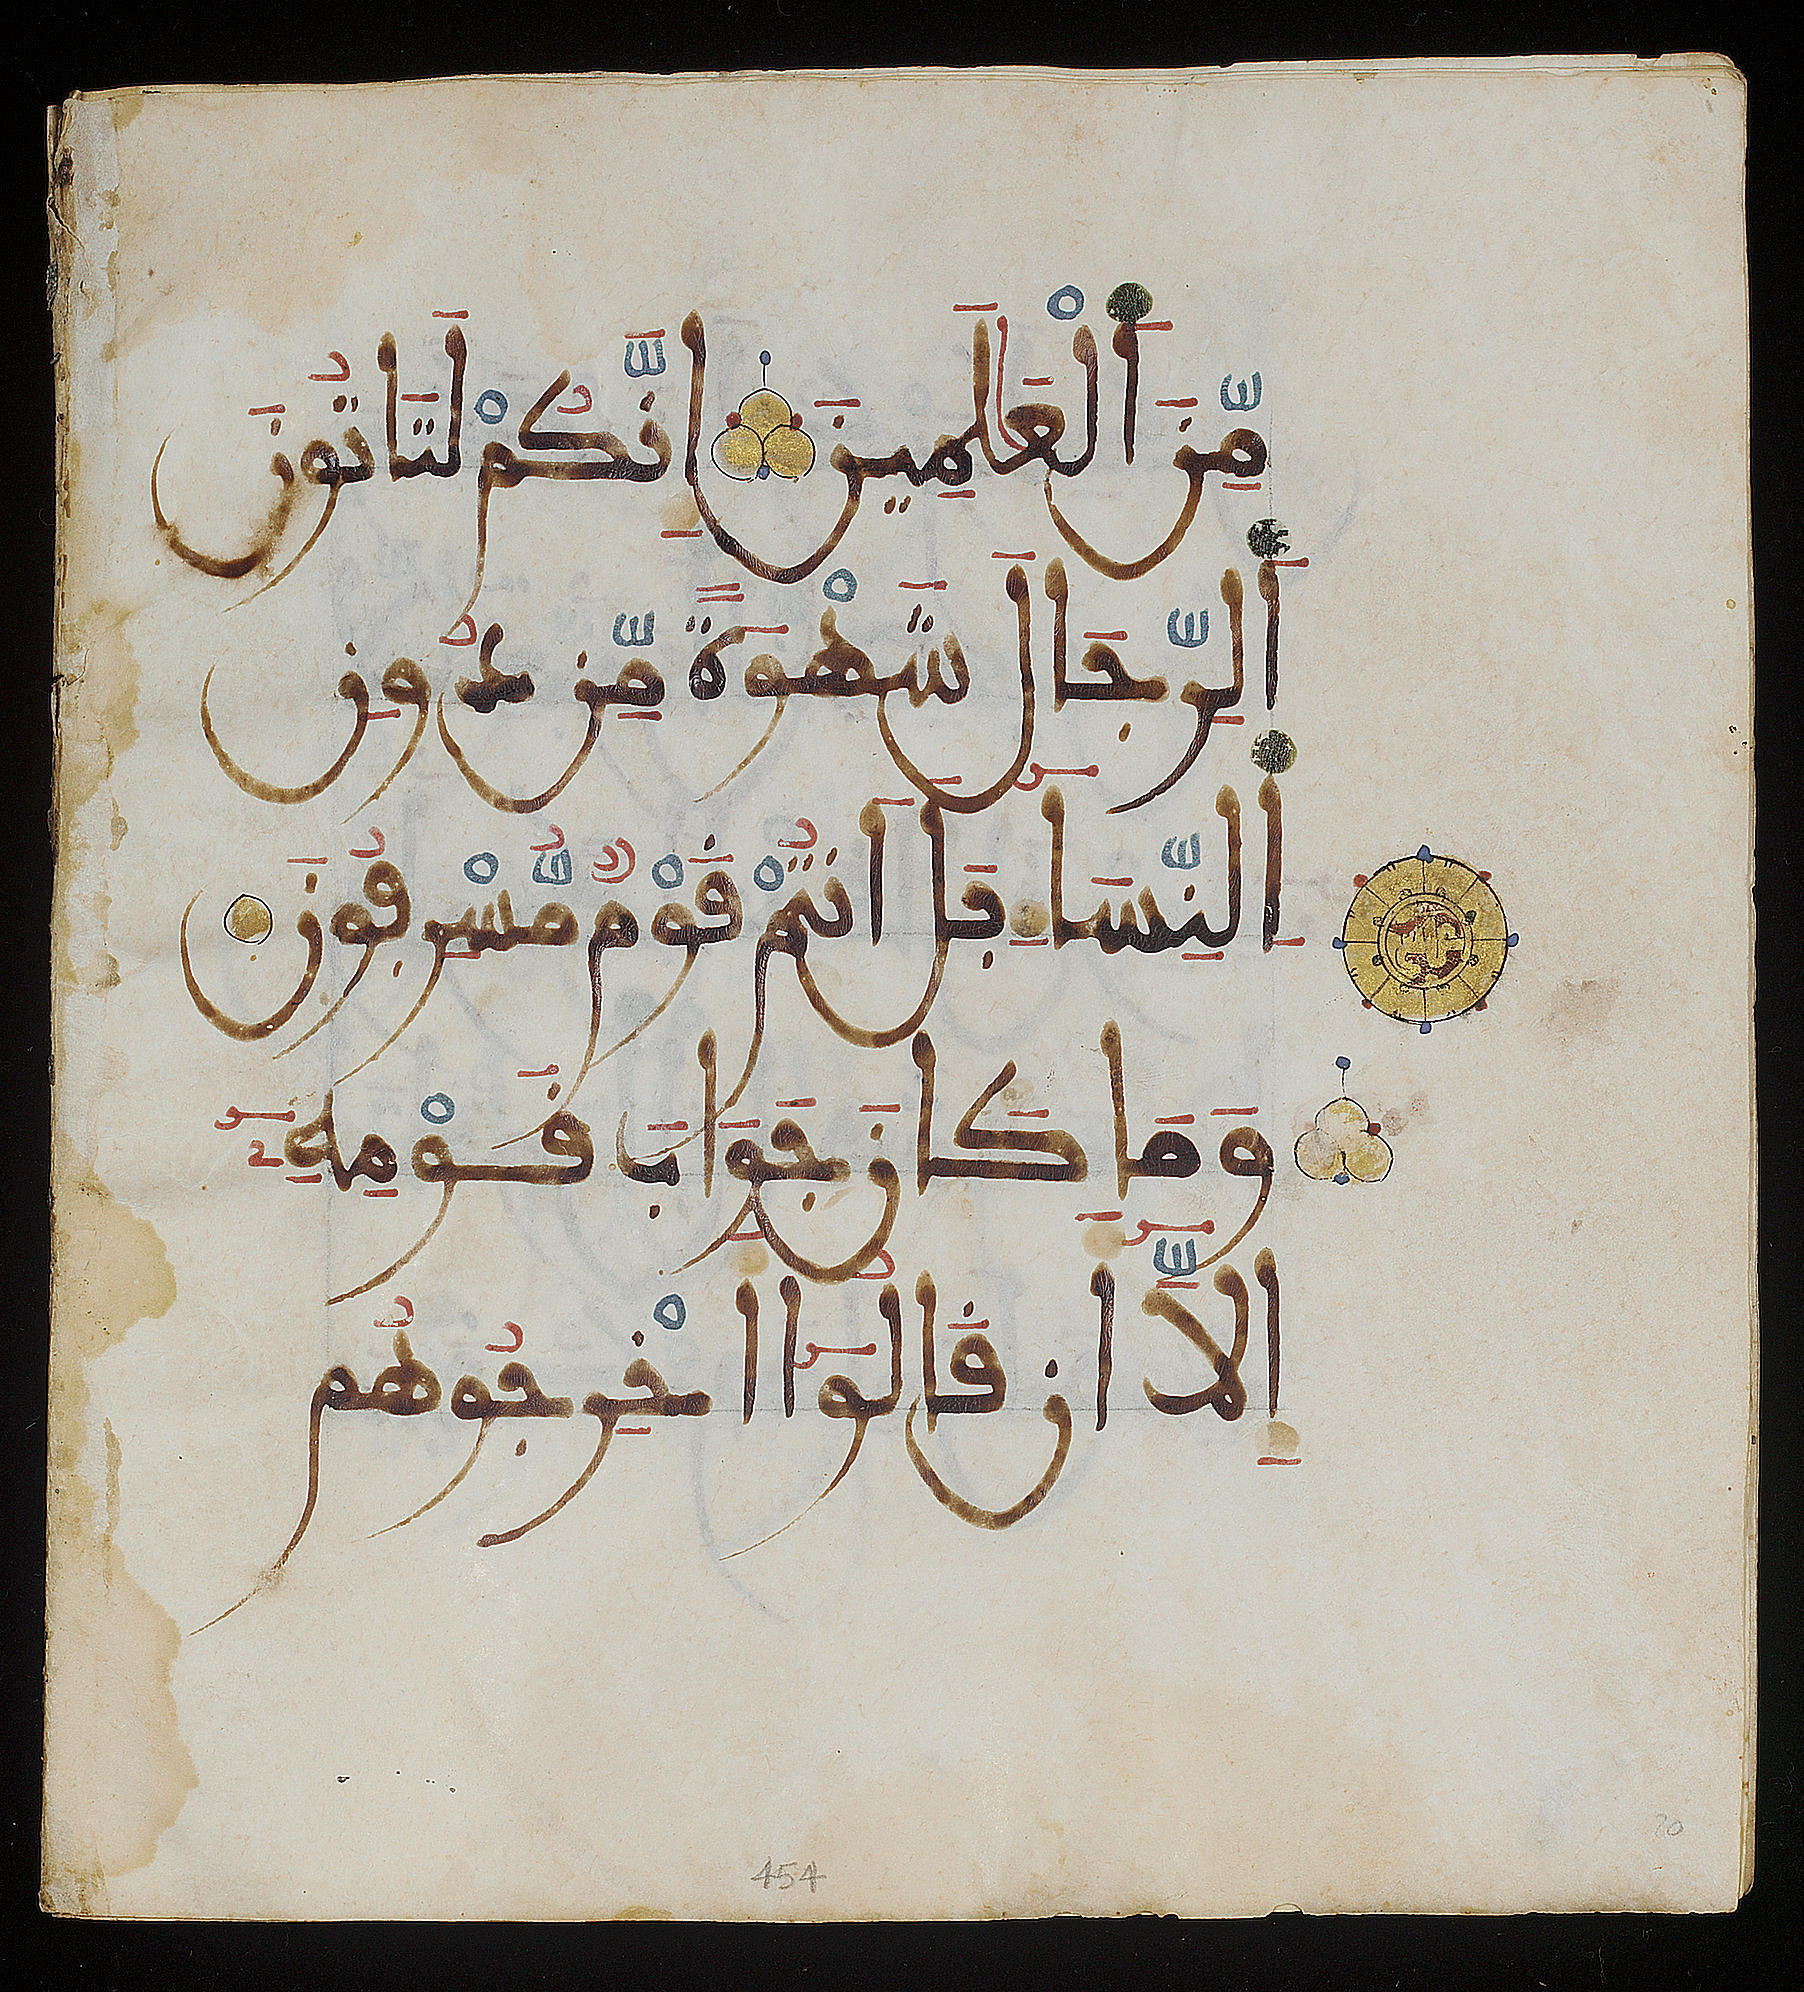 مِّنَ اَلْعَٰلَمِينَ إِنَّكُمْ لَتَاتُونَ
اَلرِّجَالَ شَهْوَةً مِّن دُونِ
اِلنِّسَآءِ بَلَ اَنتُمْ قَوْمٌ مُّسْرِفُونَ
وَمَا كَانَ جَوَابَ قَوْمِهِ
إِلَّآ أَن قَالُوٓا أَخْرِجُوهُم
454
20